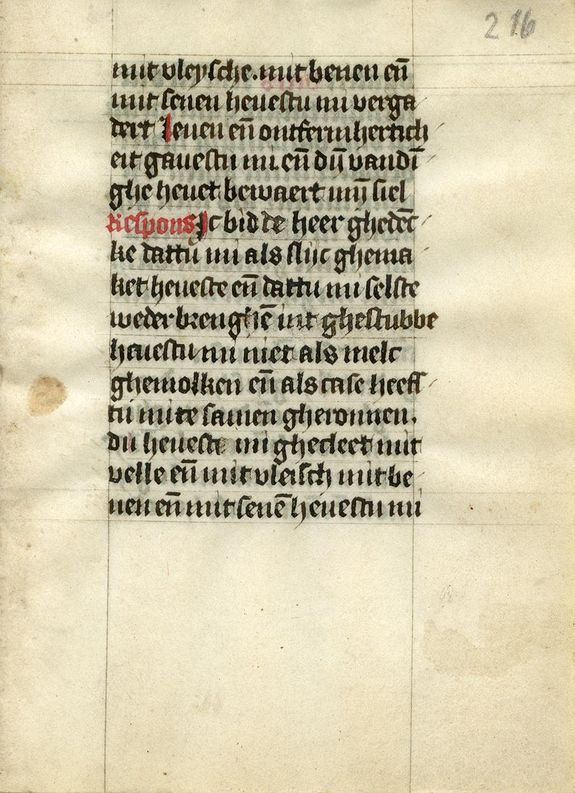 216
mit vleysche. mit benen en̄
mit senen heuestu mi verga
dert Leuen en̄ ontfermhertich
eit gauestu mi. en̄ dijn vandī
ghe heuet bewaert mijn siel
Respons Ic bidde heer ghedēc
ke dattu mi als slijc ghema
ket heueste en̄ dattu mi selste
weder brenghē int ghestubbe
heuestu mi niet als melc
ghemolken en̄ als case heeff
tu mi te samen gheronnen.
du heueste mi ghecleet mit
velle en̄ mit vleisch mit be
nen en̄ mit senē heuestu mi